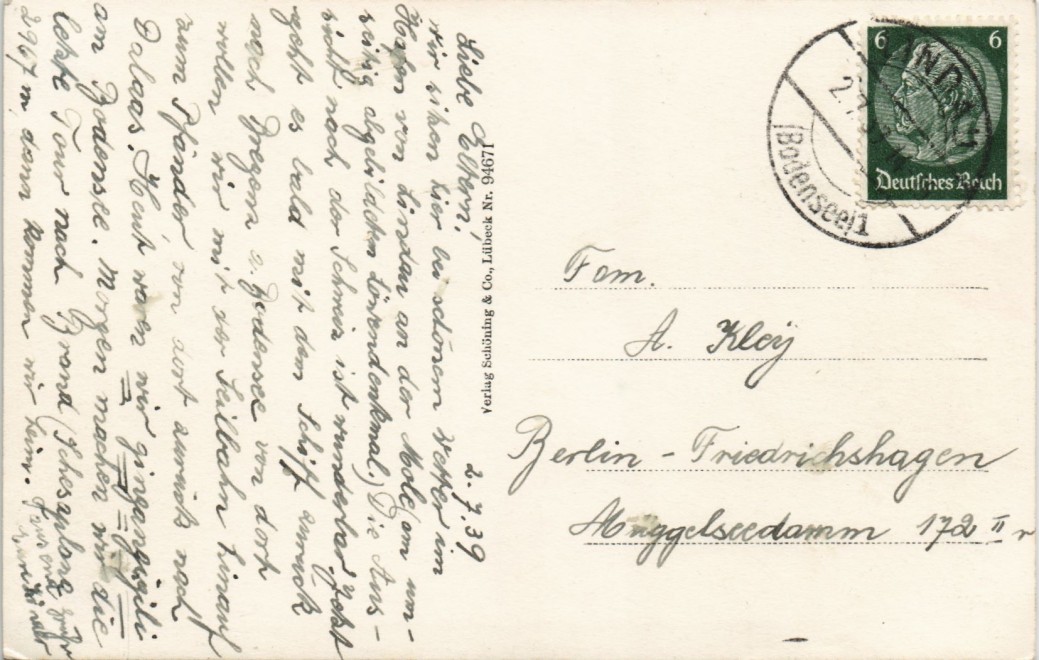 2.7.39
Liebe Eltern,
wir sitzen hier bei schönem Wetter im
Hafen von Lindau an der Mole (am um-
seitig abgebildeten Löwendenkmal.) Die Aus-
sicht nach der Schweiz ist wunderbar. Jetzt
geht es bald mit dem Schiff zurück
nach Bregenz a. Bodensee von dort
wollen wir mit der Seilbahn hinauf
zum Pfänder, von dort zurück nach
Dalaas. Heut waren wir
am Bodensee. Morgen machen wir die
letzte Tour nach Brand (Schesaplana
2967 m, dann kommen wir heim.
Verlag Schöning & Co., Lübeck Nr. 94671
6 6
Deutsches Reich
LINDAU
2.7.39
(Bodensee)1
Fam.
A. Kley
Berlin - Friedrichshagen
Müggelseedamm 172 II r